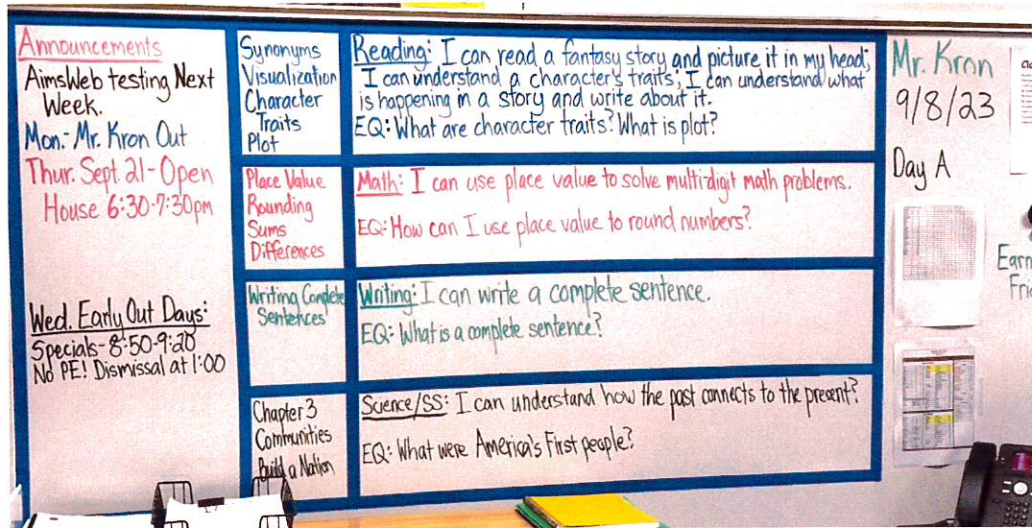 Announcements
AimsWeb testing Next
Week.
Mon.- Mr. Kron Out
Thur. Sept. 21 - Open
House 6:30-7:30pm
Wed. Early Out Days:
Specials - 8:50-9:20
No PE! Dismissal at 1:00
Synonyms
Visualization
Character
Traits
Plot
Reading: I can read a fantasy story and picture it in my head;
I can understand a character's traits; I can understand what
is happening in a story and write about it.
EQ: What are character traits? What is plot?
Place Value
Rounding
Sums
Differences
Math: I can use place value to solve multi-digit math problems.
EQ: How can I use place value to round numbers?
Writing Complete
Sentences
Writing: I can write a complete sentence.
EQ: What is a complete sentence?
Chapter 3
Communities
Build a Nation
Science/SS: I can understand how the past connects to the present?
EQ: What were America's First people?
Mr. Kron
9/8/23
Day A
Earn